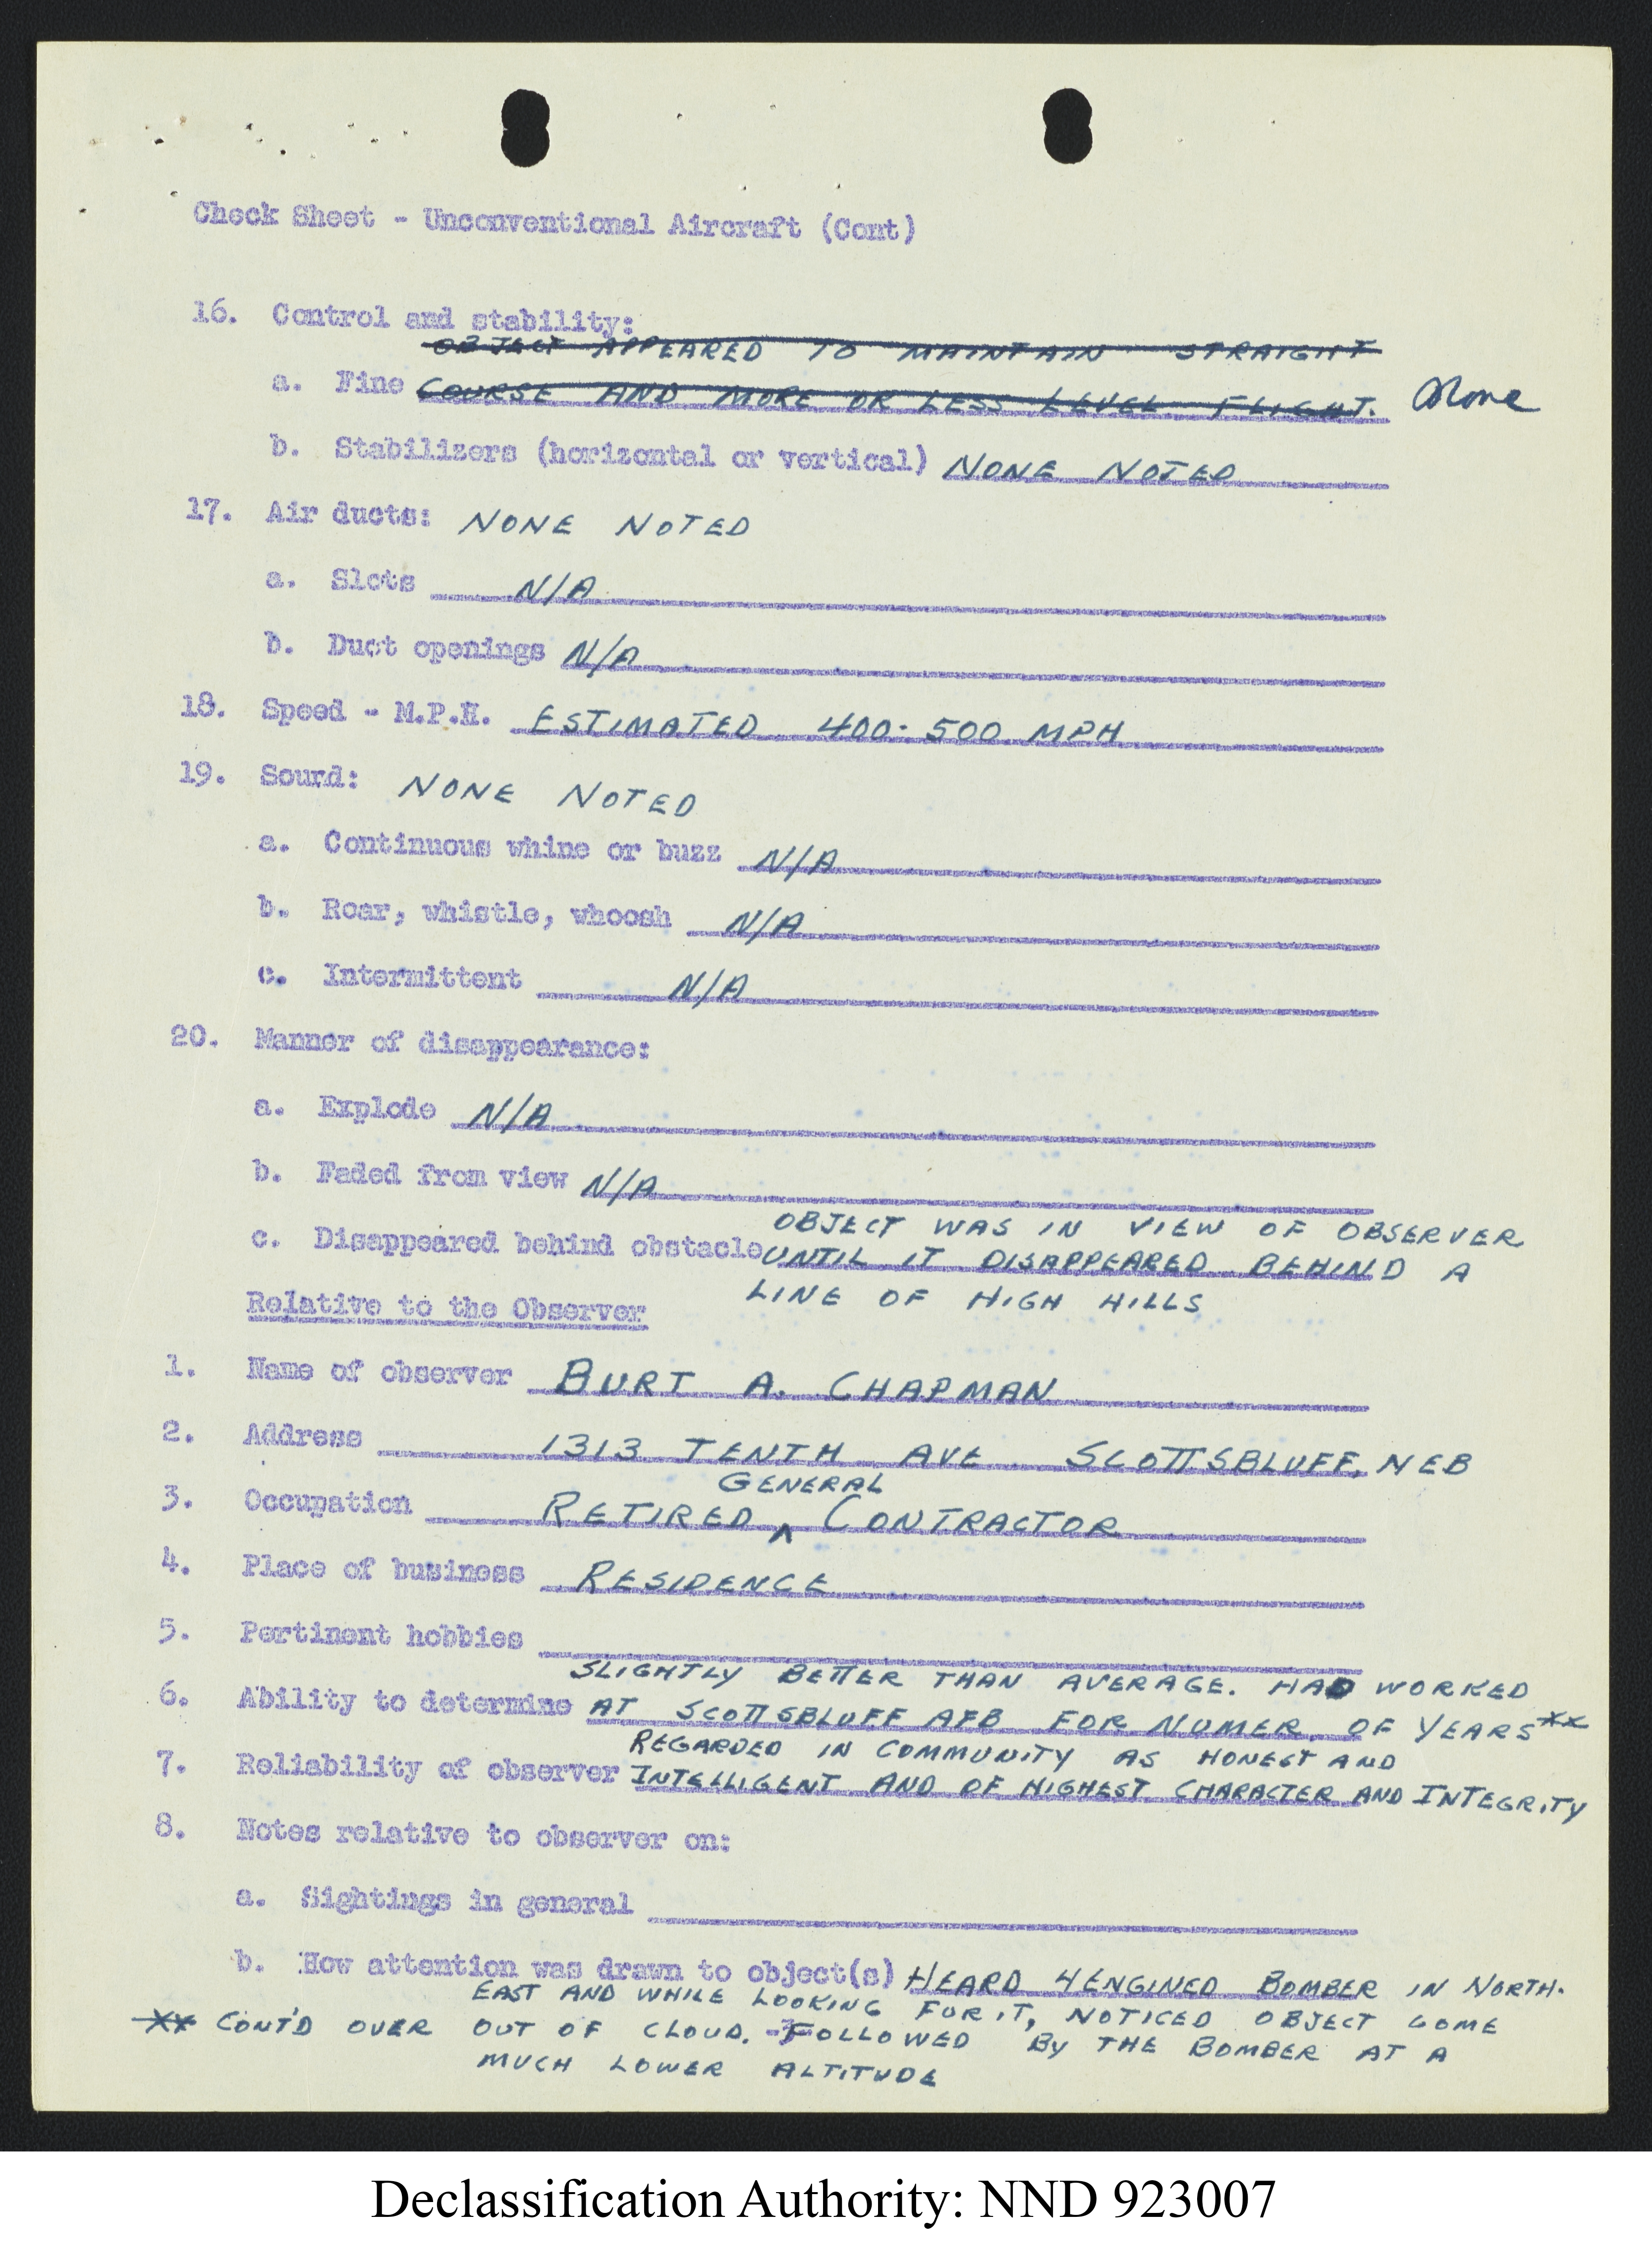 Check Sheet - Unconventional Aircraft (Cont)
16. Control and stability:
OBJECT APPEARED TO MAINTAIN STRAIGHT
a. Fine COURSE AND MORE OR LESS LEVEL FLIGHT. None
b. Stabilizers (horizontal or vertical) NONE NOTED
17. Air ducts: NONE NOTED
a. Slots N/A
b. Duct openings N/A
18. Speed - M.P.H. ESTIMATED 400-500 MPH
19. Sound: NONE NOTED
a. Continuous whine or buzz N/A
b. Roar, whistle, whoosh N/A
c. Intermittent N/A
20. Manner of disappearance:
a. Explode N/A
b. Faded from view N/A
OBJECT WAS IN VIEW OF OBSERVER
c. Disappeared behind obstacle UNTIL IT DISAPPEARED BEHIND A
LINE OF HIGH HILLS
Relative to the Observer
1. Name of observer BURT A. CHAPMAN
2. Address 1313 TENTH AVE SCOTTSBLUFF, NEB
GENERAL
3. Occupation RETIRED ^ CONTRACTOR
4. Place of business RESIDENCE
5. Pertinent hobbies
SLIGHTLY BETTER THAN AVERAGE. HAD WORKED
6. Ability to determine AT SCOTTSBLUFF AFB FOR NUMER. OF YEARS **
REGARDED IN COMMUNITY AS HONEST AND
7. Reliability of observer INTELLIGENT AND OF HIGHEST CHARACTER AND INTEGRITY
8. Notes relative to observer on:
a. Sightings in general
b. How attention was drawn to object(s) HEARD 4 ENGINED BOMBER IN NORTH-
EAST AND WHILE LOOKING FOR IT, NOTICED OBJECT COME
** CONT'D OVER OUT OF CLOUD. FOLLOWED BY THE BOMBER AT A
MUCH LOWER ALTITUDE
Declassification Authority: NND 923007